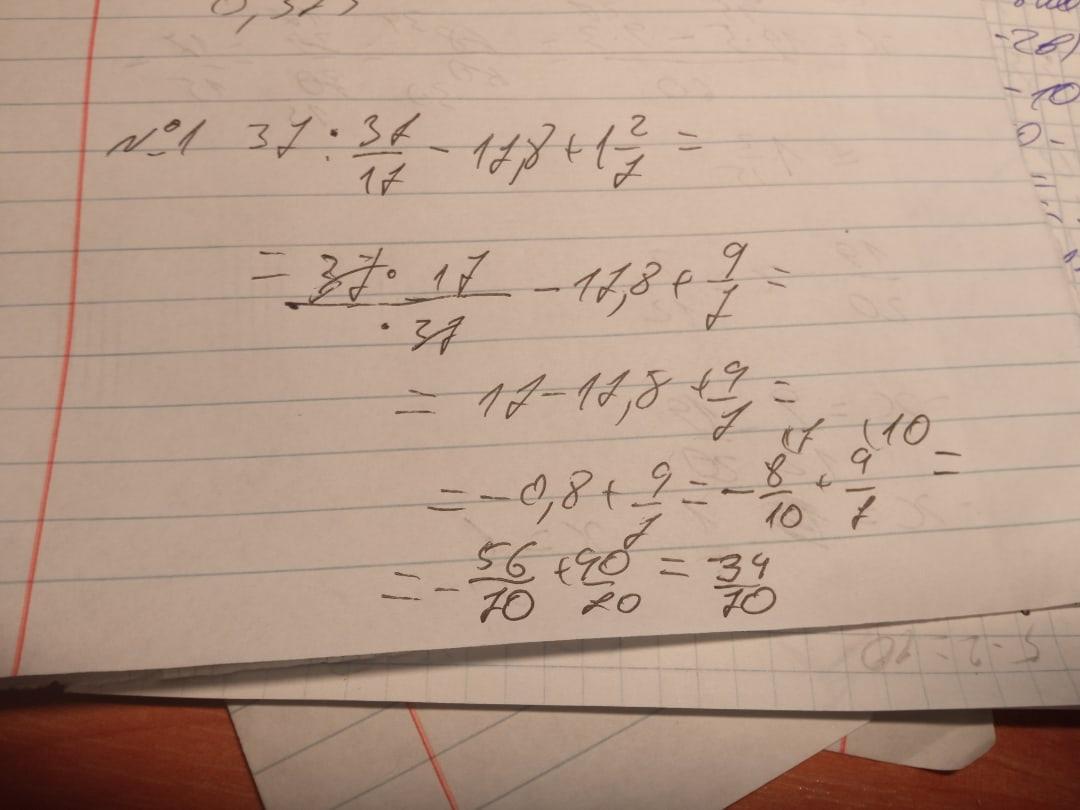 0,375
№1 37 : 37/17 - 17,8 + 1 2/7 =
= 37 · 17 / · 37 - 17,8 + 9/7 =
= 17 - 17,8 + 9/7 =
= - 0,8 + 9/7 = - 8/10 (7 + 9/7 (10 =
= - 56/70 + 90/70 = 34/70
5 - 2 = 10